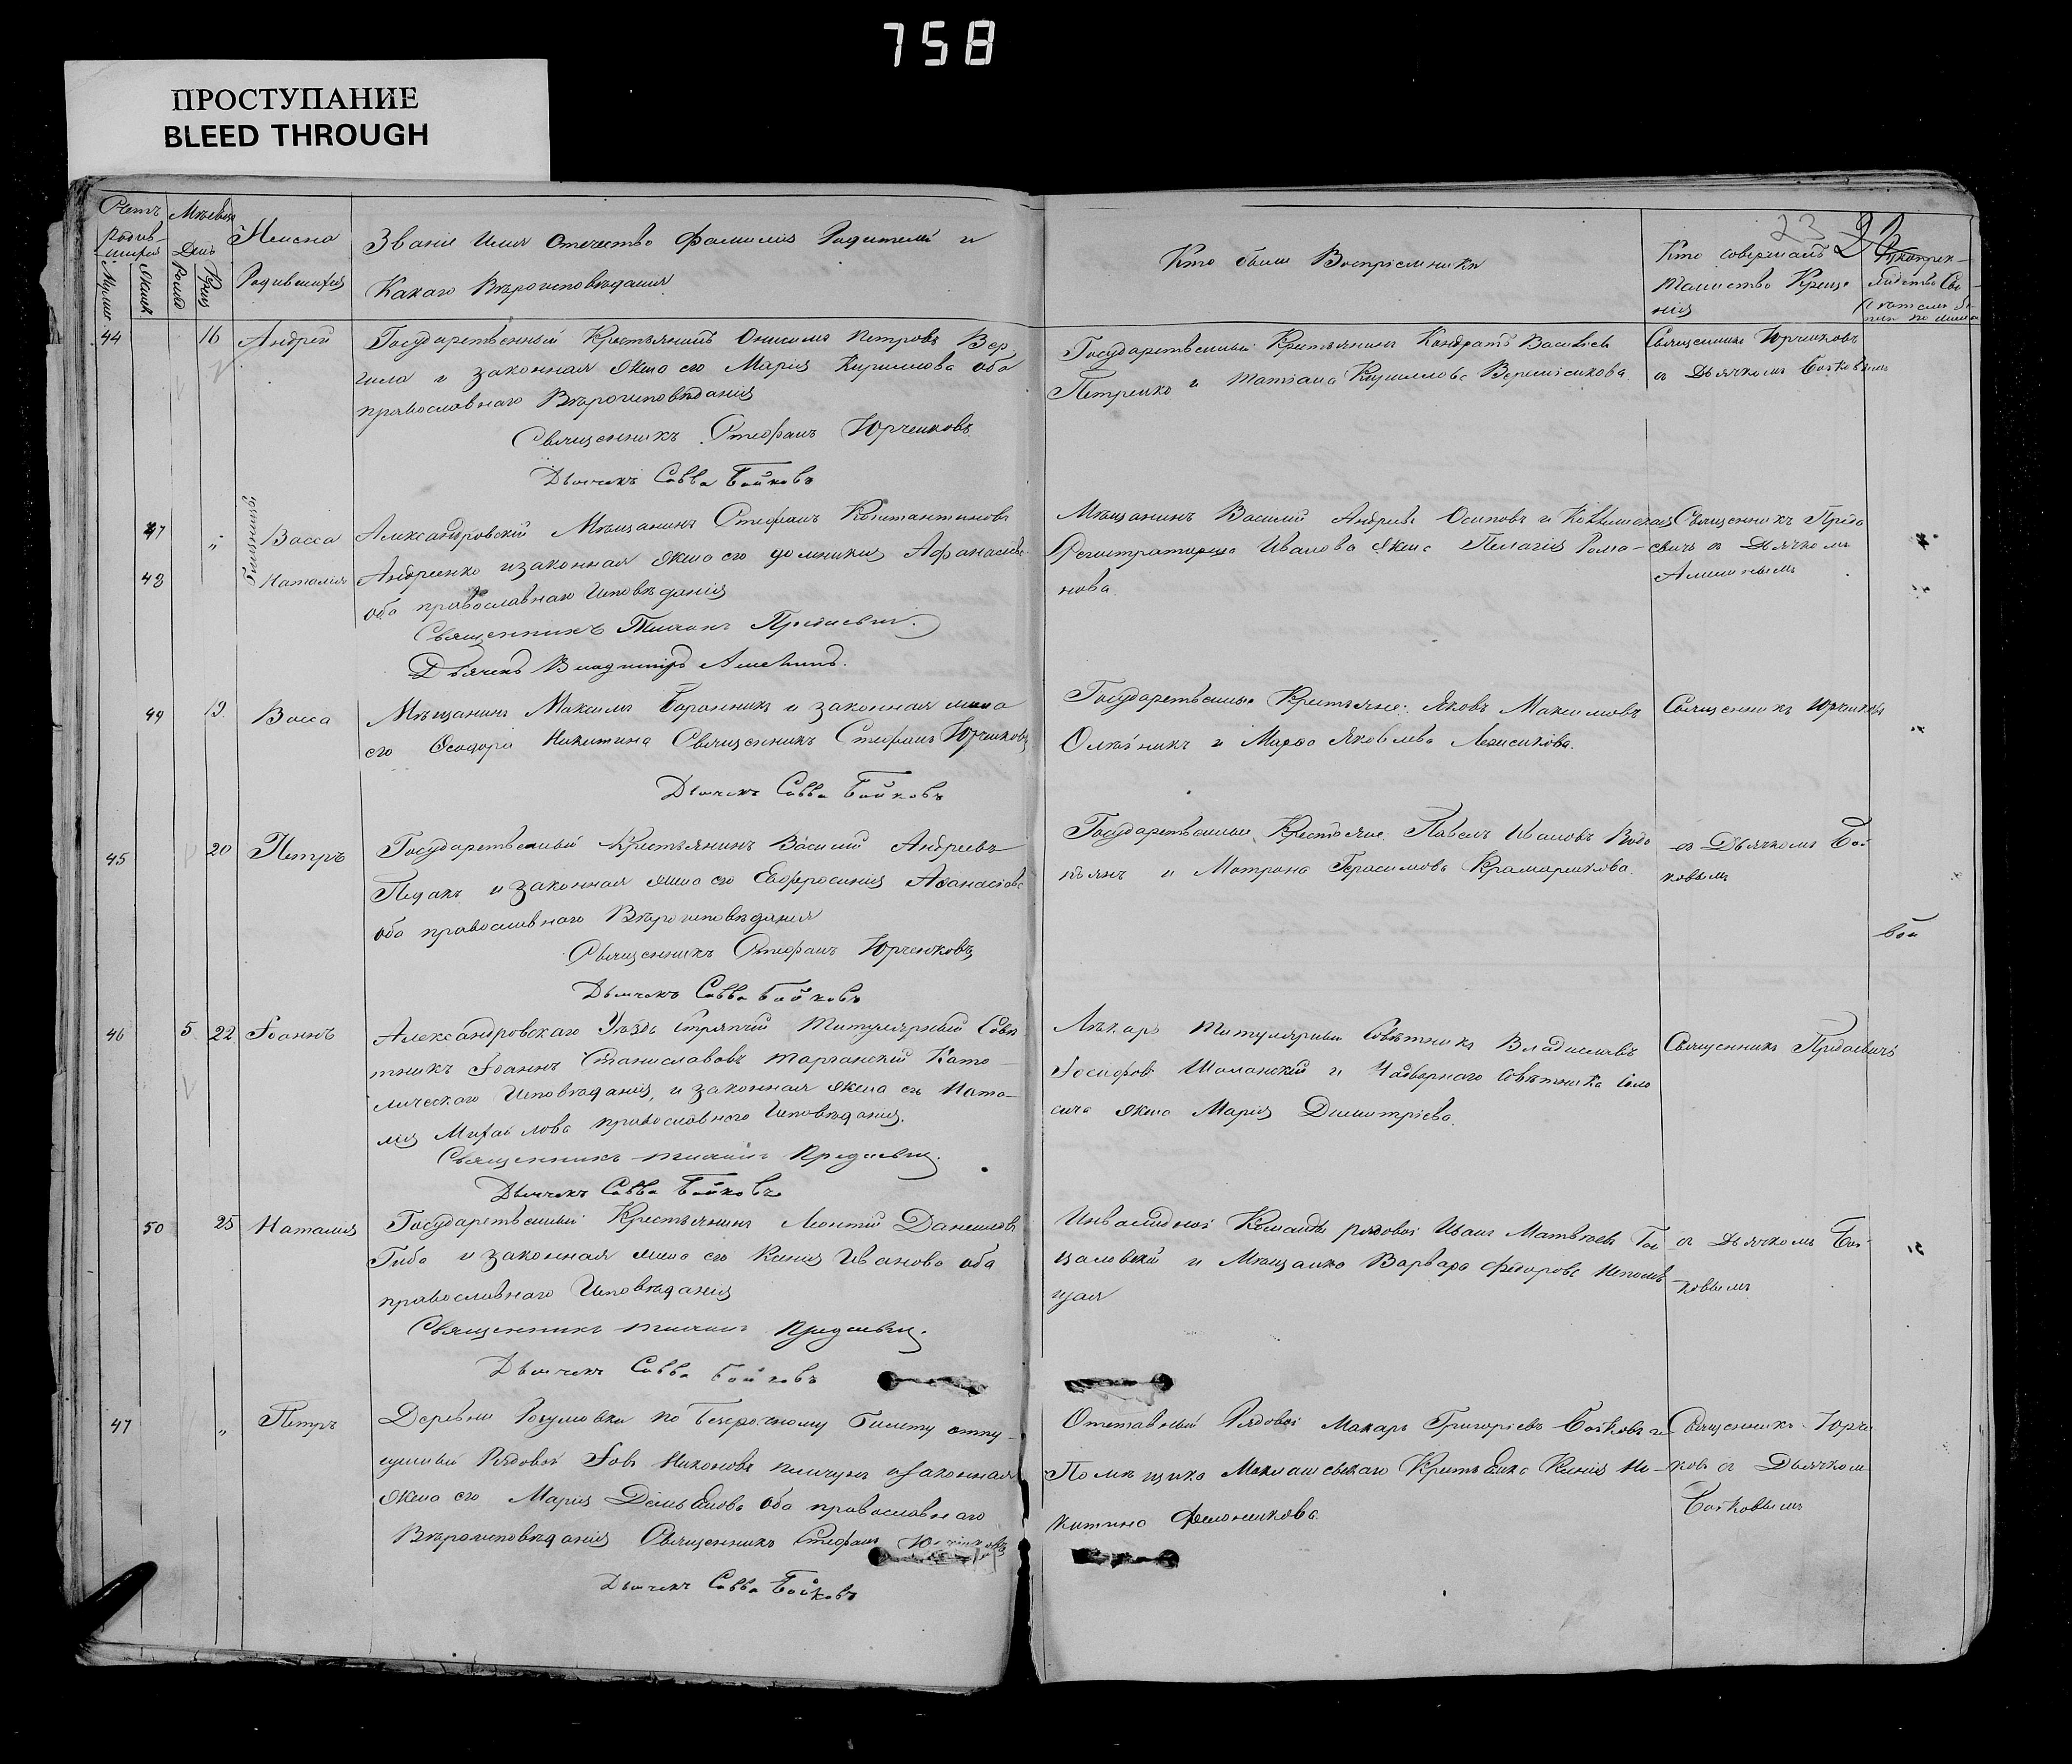 758
ПРОСТУПАНИЕ
BLEED THROUGH
Счетъ родив-шихся
Муж.
Женск.
Мѣсяцъ День
Рожд
Крещ
Имена Родившихся
Званіе Имя Отечество Фамилія Родителей и
Какаго Вѣроисповѣданія
Кто были Воспріемники
Кто совершалъ
таинство Креще
нія
23
44 16 Андрей
Государственный Крестьянинъ Онисимъ Петровъ Вер
гила и законная жена его Марія Кириллова оба
православнаго Вѣроисповѣданія
Священникъ Стефанъ Юрченковъ
Дьячекъ Савва Бойковъ
Государственный Крестьянинъ Кондратъ Васильевъ
Петренко и Татіана Кириллова
Священникъ Юрченковъ
съ Дьячкомъ Бойковымъ
47 „ Васса
48 Наталія
близницы
Александровскій Мѣщанинъ Стефанъ Константиновъ
Андреенко и законная жена его Домникія Афанасіева
оба православнаго Исповѣданія
Священникъ Придаевич.
Дьячекъ Владиміръ
Мѣщанинъ Василій Андреевъ Осиповъ и Коллежскаго
Регистратора Иванова жена Пелагія Рома-
нова
Священникъ Прида
евичъ съ Дьячкомъ
49 19 Васса
Мѣщанинъ Максимъ Баранникъ и законная жена
его Ѳеодора Никитина Священникъ Стефанъ Юрченковъ
Дьячекъ Савва Бойковъ
Государственные Крестьяне: Яковъ Максимовъ
Олейникъ и Марѳа Яковлева
Священникъ Юрченковъ
45 20 Петръ
Государственный Крестьянинъ Василій Андреевъ
Педакъ и законная жена его Евфросинія Афанасіева
оба православнаго Вѣроисповѣданія
Священникъ Стефанъ Юрченковъ
Дьячекъ Савва Бойковъ
Государственные Крестьяне Павелъ Ивановъ Водо
пьянъ и Матрона Герасимова Крамаренкова.
съ Дьячкомъ Бой
ковымъ
46 5 22 Іоаннъ
Александровскаго Уѣзда Стряпчій Титулярный Совѣ
тникъ Іоаннъ Станиславовъ Като-
лическаго Исповѣданія, и законная жена его Ната-
лія Михайлова православнаго Исповѣданія.
Священникъ Придаевич.
Дьячекъ Савва Бойковъ
Лѣкарь Титулярный Совѣтникъ Владиславъ
Іосифовъ Шаманскій и Надворнаго Совѣтника
жена Марія Димитріева.
Священникъ Придаевичъ
50 25 Наталія
Государственный Крестьянинъ Леонтій Даниловъ
Гиба и законная жена его Ксенія Иванова оба
православнаго Исповѣданія
Священникъ Придаевич.
Дьячекъ Савва Бойковъ
Инвалидной Команды рядовой Иванъ Матвѣевъ
и Мѣщанка Варвара Федорова
съ Дьячкомъ Бой
ковымъ
47 „ Петръ
Деревни по Безсрочному Билету отпу-
щенный Рядовой Іовъ Никоновъ и законная
жена его Марія Демьянова оба православнаго
Вѣроисповѣданія Священникъ Стефанъ Юрченковъ
Дьячекъ Савва Бойковъ
Отставный Рядовой Макаръ Григорьевъ Бойковъ и
Помѣщика Крестьянка Ксенія Ни-
китина
Священникъ Юрчен
ковъ съ Дьячкомъ
Бойковымъ